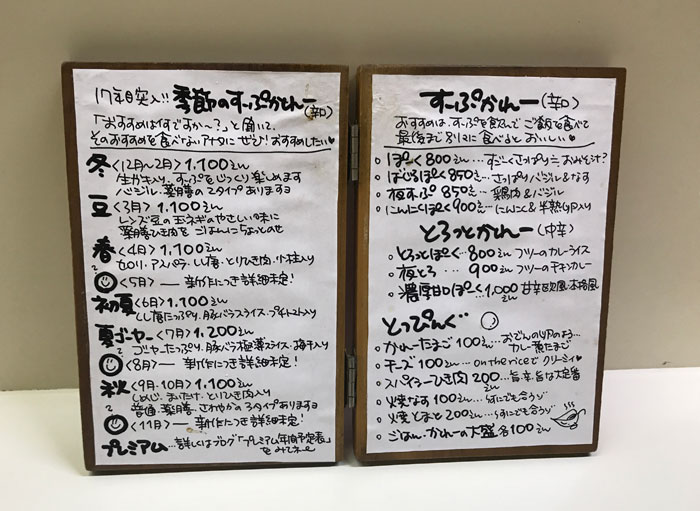 17年目突入!! 季節のすーぷかれー(辛口)
「おすすめは何ですか〜?」と聞いて、
そのおすすめを食べないアナタに ぜひ!おすすめしたい♥
冬 <12月〜2月> 1.100えん
生カキ入り。すーぷをじっくり楽しめます
バジル 薬膳の2タイプありますヨ
豆 <3月> 1.100えん
レンズ豆の玉ネギのやさしい味に
薬膳ひき肉を ごはんにちょっとのせ
春 <4月> 1.100えん
セロリ・アスパラ・しし唐・とりひき肉・小柱入り
<5月> — 新作につき詳細未定!
初夏 <6月> 1.100えん
しし唐たっぷり。豚バラスライス・プチトマト入り
夏ゴーヤー <7月> 1.200えん
ゴーヤーたっぷり。豚バラ極薄スライス・梅干入り
<8月> — 新作につき詳細未定!
秋 <9月・10月> 1.100えん
しめじ・まいたけ・とりひき肉入り
普通・薬膳・さわやかの3タイプありますヨ
<11月> — 新作につき詳細未定!
プレミアム…詳しくはブログ「プレミアム年間予定表」
をみてネ
すーぷかれー(辛口)
おすすめは、すーぷを飲んで ご飯を食べて
最後まで別々に食べるとおいしい♥
ぽーく 800えん…すごーくさっぱり 〜おみそ汁?
ばじるぽーく 850えん…さっぱりバジル&なす
夜すーぷ 850えん…鶏肉&バジル
にんにくぽーく 900えん…にんにく&半熟卵入り
とろっとかれー(中辛)
とろっとぽーく…800えん フツーのカレーライス
夜とろ…900えん フツーのチキンカレー
濃厚甘口ぽーく…1,000えん 甘辛欧風本格風
とっぴんぐ
かれーたまご 100えん…おでんの卵のよう…カレー煮たまご
チーズ 100えん…on the riceで クリーミィ♥
スパイシーひき肉 200えん…旨辛旨な大定番
焼なす 100えん…なににでも合うゾ
焼とまと 200えん…なににでも合うゾ
ごはん・かれーの大盛 各100えん